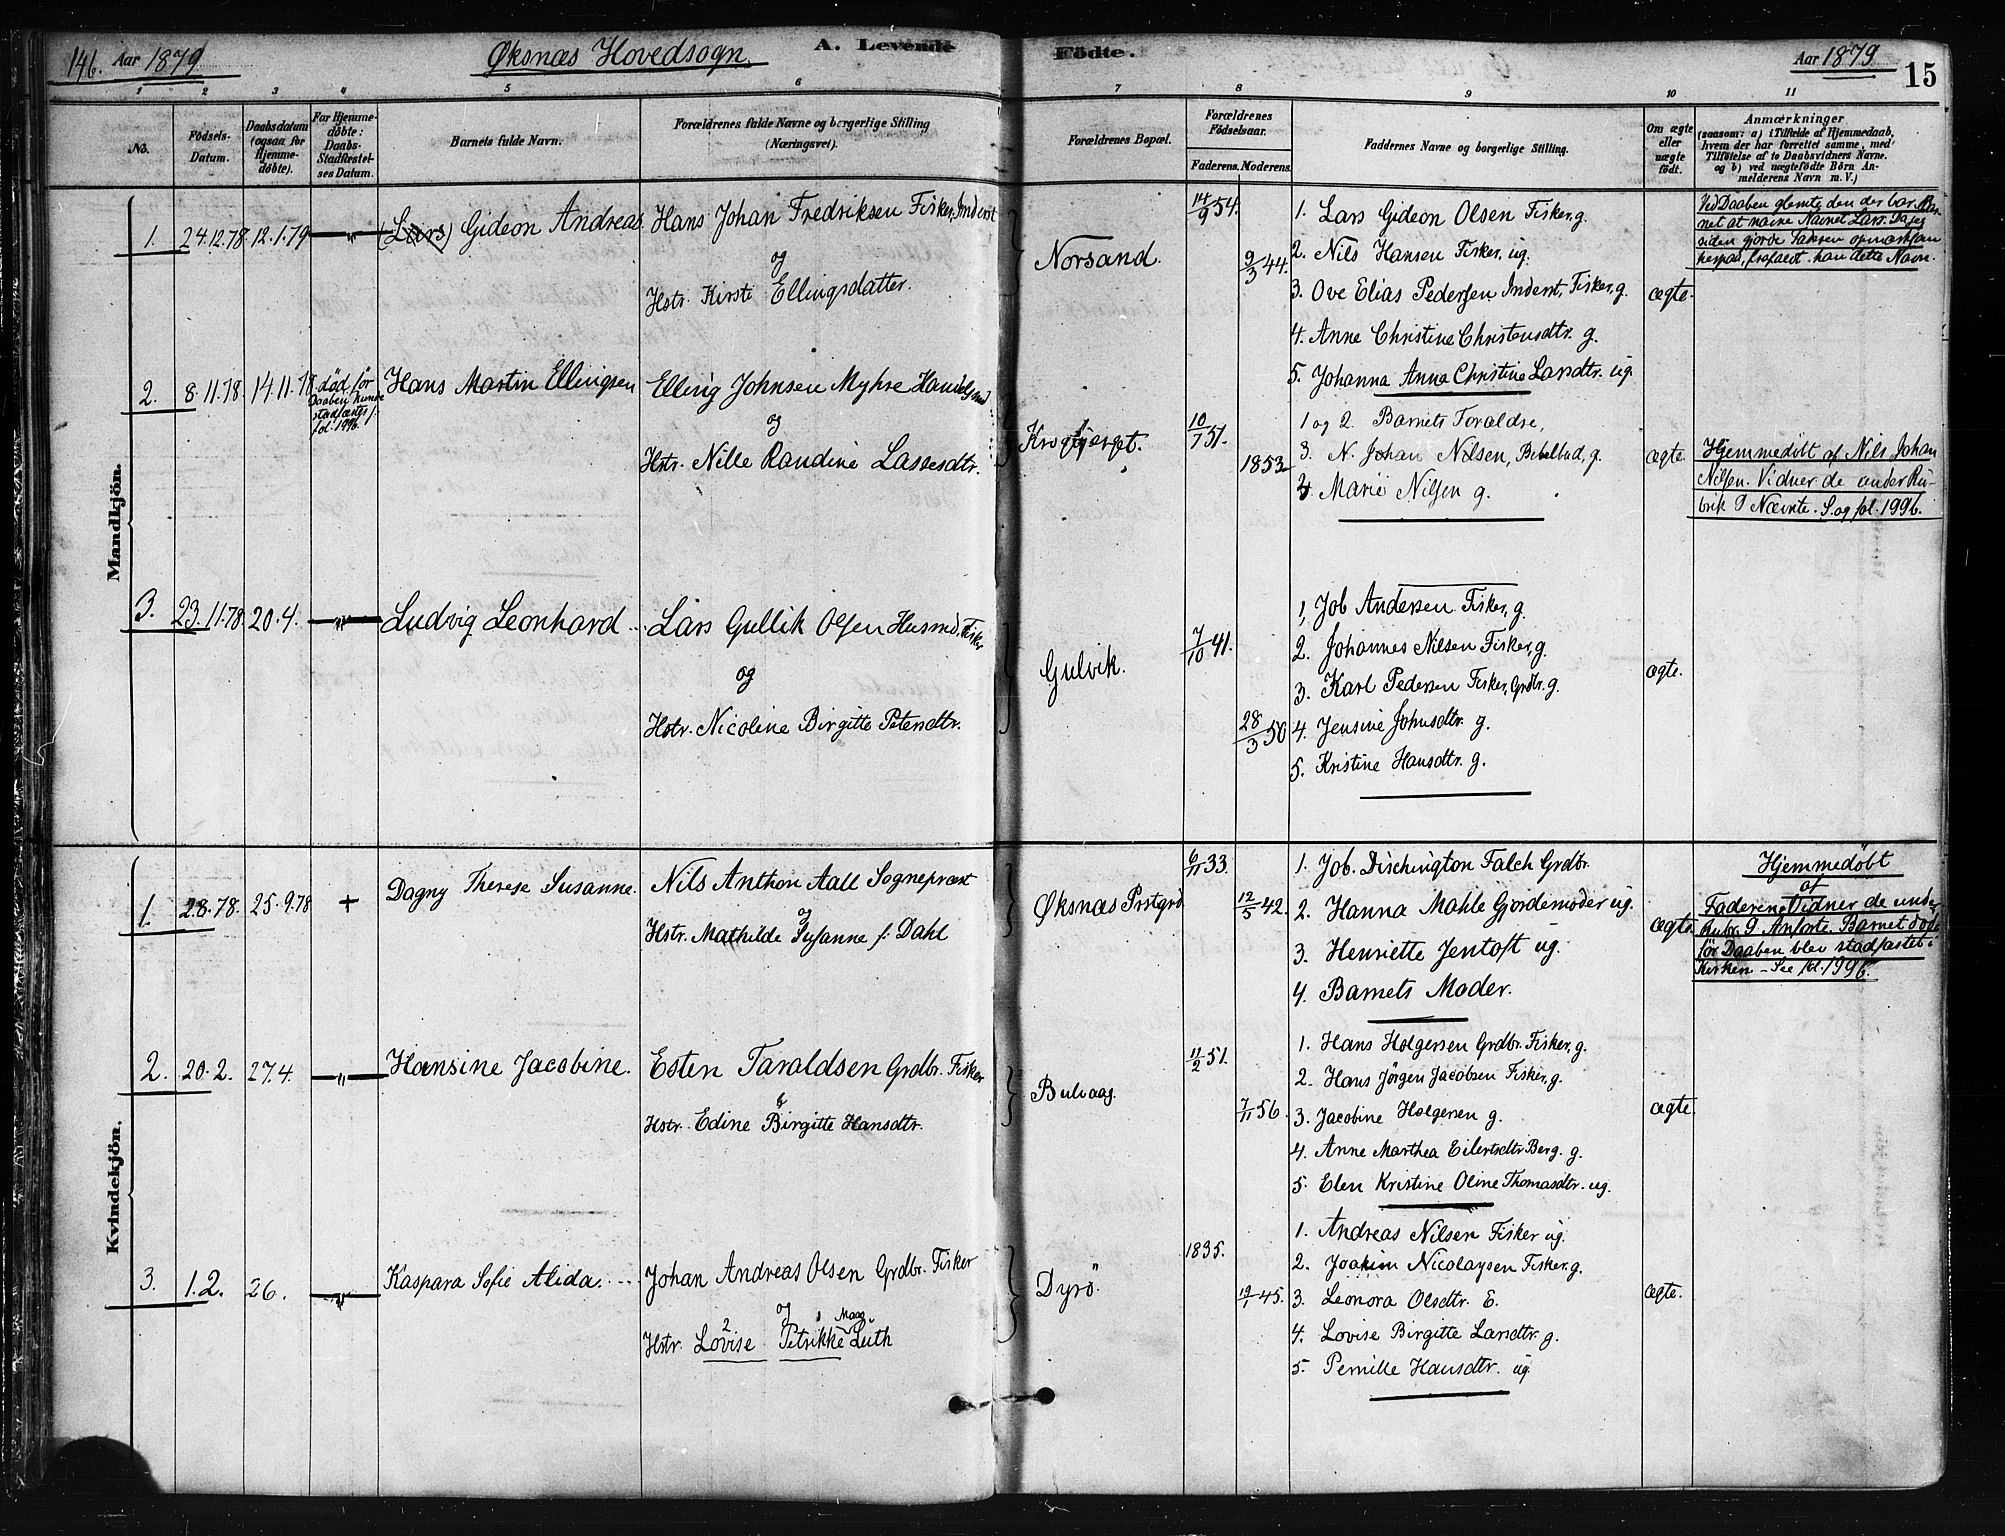 146. Aar 1879
Øksnæs Hovedsogn.
A. Levende Födte.
Aar 1879
15
1 2 3 4 5 6 7 8 9 10 11
No.
Födsels-Datum.
Daabsdatum (ogsaa for Hjemmedöbte).
For Hjemmedöbte: Daabs-Stadfæstelses Datum.
Barnets fulde Navn.
Forældrenes fulde Navne og borgerlige Stilling (Næringsvei).
Forældrenes Bopæl.
Forældrenes Födselsaar.
Faderens. Moderens.
Faddernes Navne og borgerlige Stilling.
Om ægte eller uægte födt.
Anmærkninger
(saasom: a) i Tilfælde af Hjemmedaab,
hvem der har forrettet samme, med
Tilföielse af to Daabsvidners Navne.
og b) ved uægtefödte Börn An-
melderens Navn m. V.)
Mandkjön.
1. 24.12.78. 12.1.79 — " — (Lars) Gideon Andreas. Hans Johan Fredriksen Fisker, Inderst
og
Hstr. Kirste Ellingsdatter.
Norsand.
14/9 54.
9/3 44.
1. Lars Gideon Olsen Fisker, g.
2. Nils Hansen Fisker, ug.
3. Ove Elias Pedersen Inderst, Fisker, g.
4. Anne Christine Christensdtr. g.
5. Johanna Anna Christine Larsdtr. ug.
ægte.
Ved Daaben glemte den der bar Bar-
net at nævne Navnet Lars. Da jeg
siden gjorde Faderen opmærksom
herpaa, frafaldt han dette Navn.
2. 8.11.78. 14.11.78. død før
Daaben kunde
stadfæstes f.
fol. 199b.
Hans Martin Ellingsen
Elling Johnsen Myhre Handelsmd
og
Hstr. Nille Randine Lassesdtr.
10/7 51.
1853
1 og 2. Barnets Forældre,
3 N. Johan Nilsen, g.
4 Marie Nilsen g.
ægte.
Hjemmedøbt af Nils Johan
Nilsen. Vidner de under Ru-
brik 9 Nævnte. S. og fol. 199b.
3. 23.11.78. 20.4. — " — Ludvig Leonhard
Lars Gullik Olsen Husmd. Fisker
og
Hstr. Nicoline Birgitte Petersdtr.
Gulvik.
7/10 41.
28/3 50
1, Job Andersen Fisker, g.
2. Johannes Nilsen Fisker, g.
3. Karl Pedersen Fisker, Grdbr. g.
4. Jensine Johnsdtr. g.
5. Kristine Hansdtr. g.
ægte.
Kvindekjön.
1. 2.8.78. 25.9.78 + Dagny Therese Susanne.
Nils Anthon Aall Sognepræst
og
Hstr. Mathilde Susanne f. Dahl
Øksnæs Prstgrd
33
12/5 42.
1. Job. Dischington Falch Grdbr.
2. Hanna Mahle Gjordemoder ug.
3. Henriette Jentoft ug.
4. Barnets Moder.
ægte
Hjemmedøbt
af
Faderen. Vidner de under
Rubr. 9 Anførte. Barnet døde
før Daaben blev stadfæstet i
Kirken – See fol. 199b.
2. 20.2. 27.4. — " — Hansine Jacobine.
Esten Taraldsen Grdbr. Fisker
&
Hstr. Edine Birgitte Hansdtr.
Bulvaag.
11/2 51.
7/11 56.
1. Hans Holgersen Grdbr. Fisker, g.
2. Hans Jørgen Jacobsen Fisker, g.
3. Jacobine Holgersen g.
4. Anne Marthea Eilertsdtr Berg. g.
5. Elen Kristine Oline Thomasdtr. ug.
ægte
3. 1.2. 26. — " — Kaspara Sofie Alida.
Johan Andreas Olsen Grdbr. Fisker
og
Maag
Hstr. Lovise Petrikke Lüth
Dyrö.
1835.
19/1 45.
1. Andreas Nilsen Fisker ug.
2. Joakim Nicolaysen Fisker, g.
3. Leonora Olsdtr. E.
4. Lovise Birgitte Larsdtr. g.
5. Pernille Hansdtr. ug.
ægte.